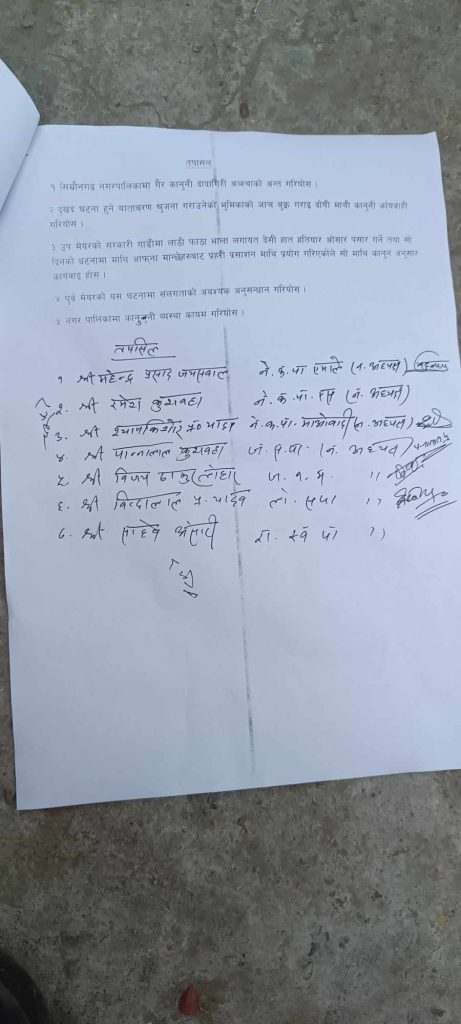 तपासिल
१ सिम्रौनगढ नगरपालिकामा गैर कानुनी दादागिरी अन्त गरियोस ।
२ दुखद घटना हुने वातावरण श्रृजना गराउनेको भुमिकाको जाच बुझ गराइ दोषी माथी कानुनी कार्यवाही
गरियोस ।
३ उप मेयरको सरकारी गाडीमा लाठी फाठा भाला लगायत देसी हात हतियार ओसार पसार गर्ने तथा सो
दिनको घटनामा माथि आफ्ना मान्छेहरुबाट प्रहरी प्रसाशन माथि प्रयोग गरिएकोले सो माथि कानुन अनुसार
कार्यवाइ होस ।
४ पुर्व मेयरको यस घटनामा संलगताको अवश्यक अनुसन्धान गरियोस ।
५ नगर पालिकामा कानुनी व्यस्था कायम गरियोस ।
तपसिल
१ श्री महेन्द्र प्रसाद जयसवाल ने.क.पा एमाले (न. अध्यक्ष)
२. श्री रमेश कुशवाहा ने.क.पा. (न. अध्यक्ष)
३. श्री श्यामकिशोर प्र० यादव ने.क.पा. माओवादी (न. अध्यक्ष)
४. श्री पान्नालाल कुशवाहा ज.स.पा. (न. अध्यक्ष)
५. श्री विजय ठाकुर लोहार ज. १. म. ''
६. श्री विन्दालाल प्र. यादव लो. सपा ''
७. श्री साहेब अंसारी रा. स्व पा ''